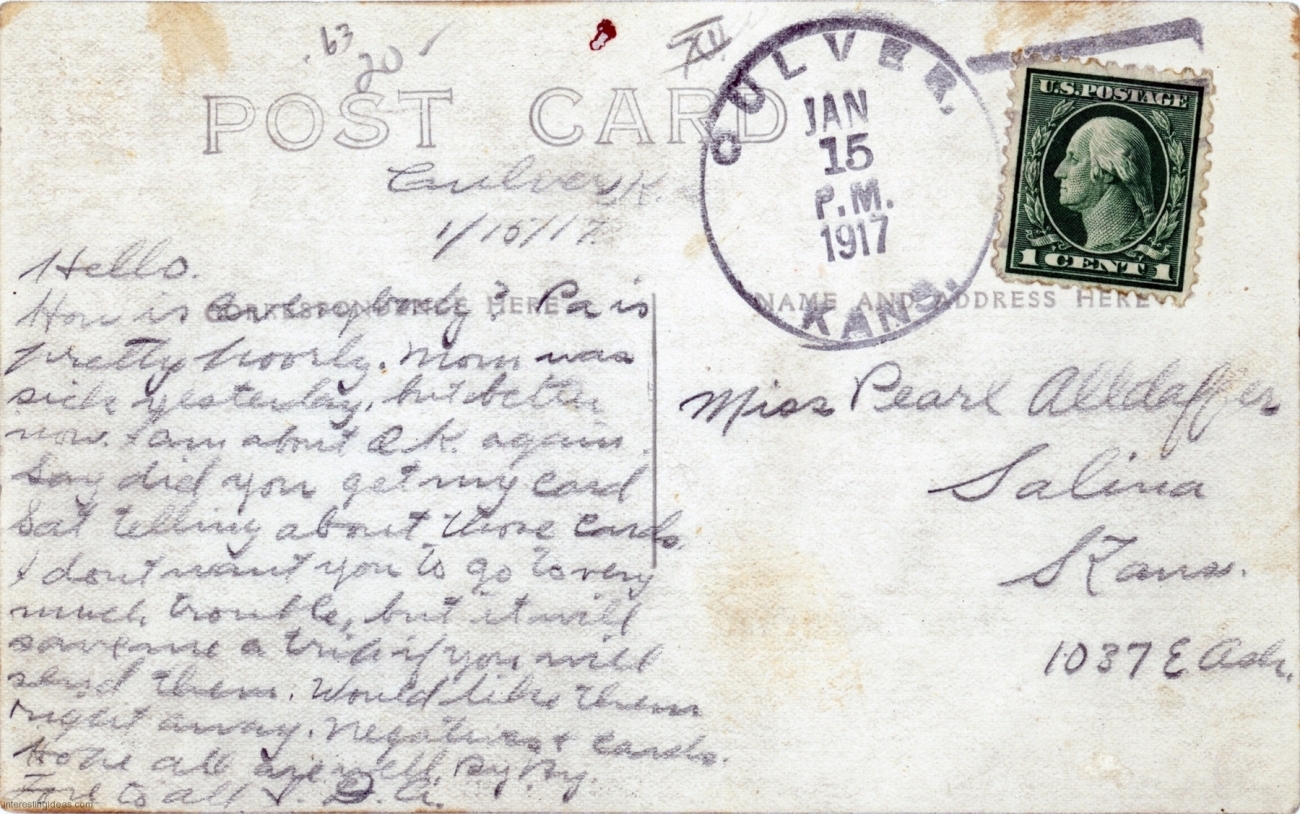 63
20
XII
POST CARD
CULVER,
JAN
15
P.M.
1917
KANS.
U.S. POSTAGE
1 CENT 1
Culver K.
1/15/17
CORRESPONDENCE HERE
NAME AND ADDRESS HERE
Hello.
How is everybody? Pa is
pretty poorly. Mom was
sick yesterday, but better
now. I am about O.K. again.
Say did you get my card
Sat telling about those cards.
I dont want you to go to very
much trouble, but it will
save me a trip if you will
send them. Would like them
right away. Negatives & cards.
Hope all are well. By By.
to all D. A.
Miss Pearl Alldaffer
Salina
Kans.
1037 E Ash.
interestingideas.com